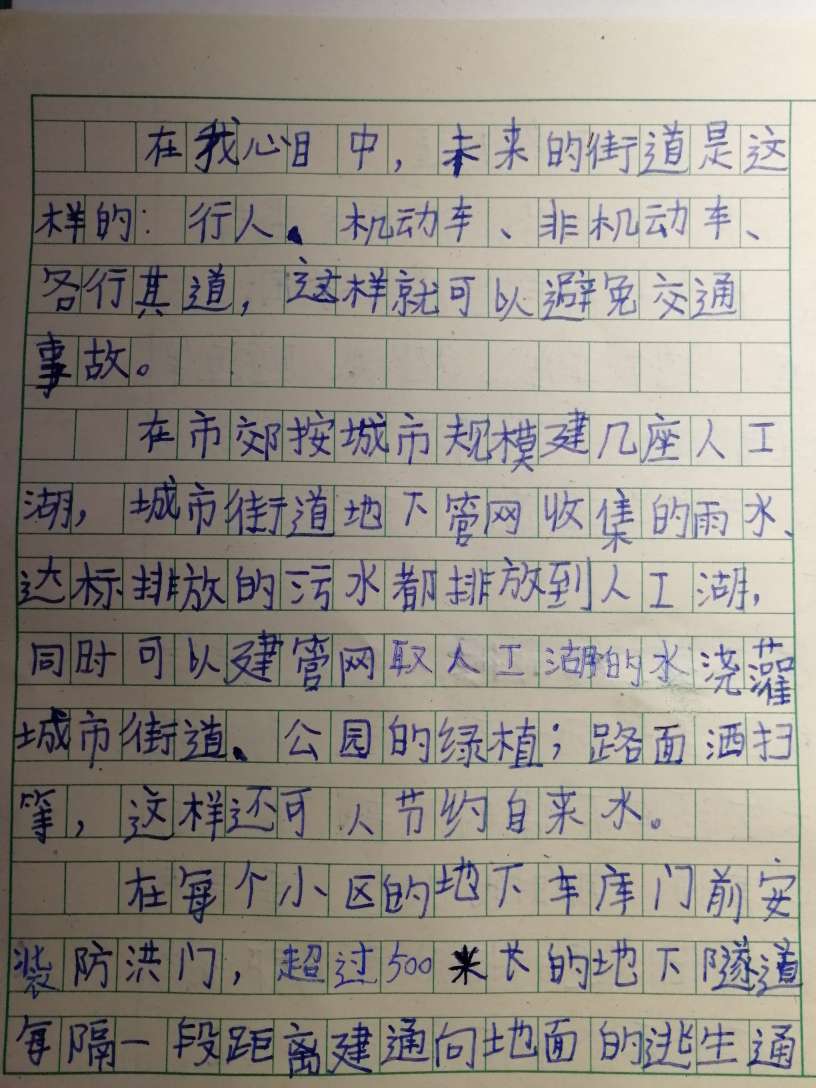 在我心目中，未来的街道是这
样的：行人、机动车、非机动车、
各行其道，这样就可以避免交通
事故。
在市郊按城市规模建几座人工
湖，城市街道地下管网收集的雨水、
达标排放的污水都排放到人工湖，
同时可以建管网取人工湖的水浇灌
城市街道、公园的绿植；路面洒扫
等，这样还可人节约自来水。
在每个小区的地下车库门前安
装防洪门，超过500米长的地下隧道
每隔一段距离建通向地面的逃生通